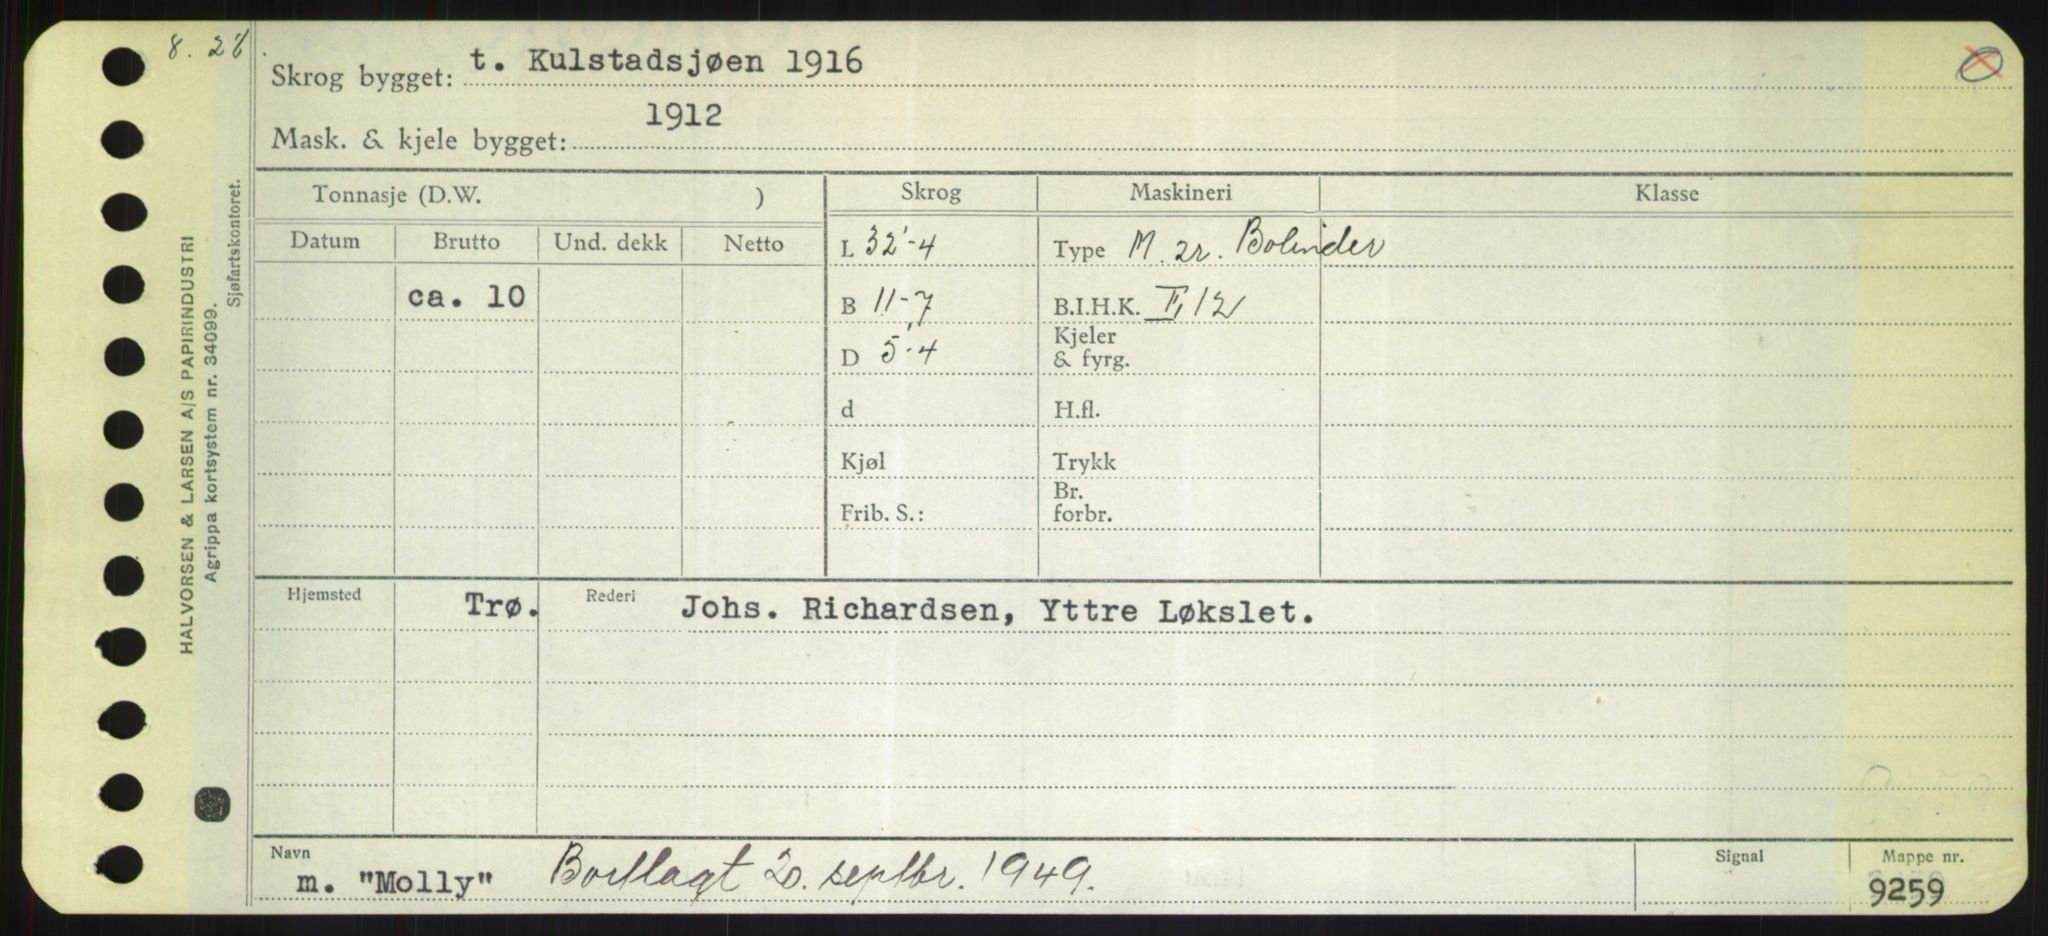 8. 28.
Skrog bygget: t. Kulstadsjøen 1916
Mask. & kjele bygget: 1912
HALVORSEN & LARSEN A/S PAPIRINDUSTRI
Agrippa kortsystem nr. 34099.
Sjøfartskontoret.
Tonnasje (D.W. ) Skrog Maskineri Klasse
Datum Brutto Und. dekk Netto
L 32'-4 Type M. 2r. Bolinder
ca. 10 B 11-7 B.I.H.K. II, 12
D 5'-4 Kjeler
& fyrg.
d H.fl.
Kjøl Trykk
Frib. S.: Br.
forbr.
Hjemsted Trø. Rederi Johs. Richardsen, Yttre Løkslet.
Navn Signal Mappe nr.
m. "Molly" Bortlagt 20. septbr. 1949. 9259